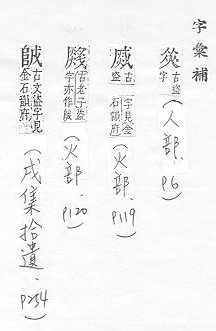 字彙補
古盜字（人部．P6）
古盛字見金石韻府（火部．P119）
古老子盜字亦作（火部．P120）
古文盛字見金石韻府（戌集拾遺．P254）